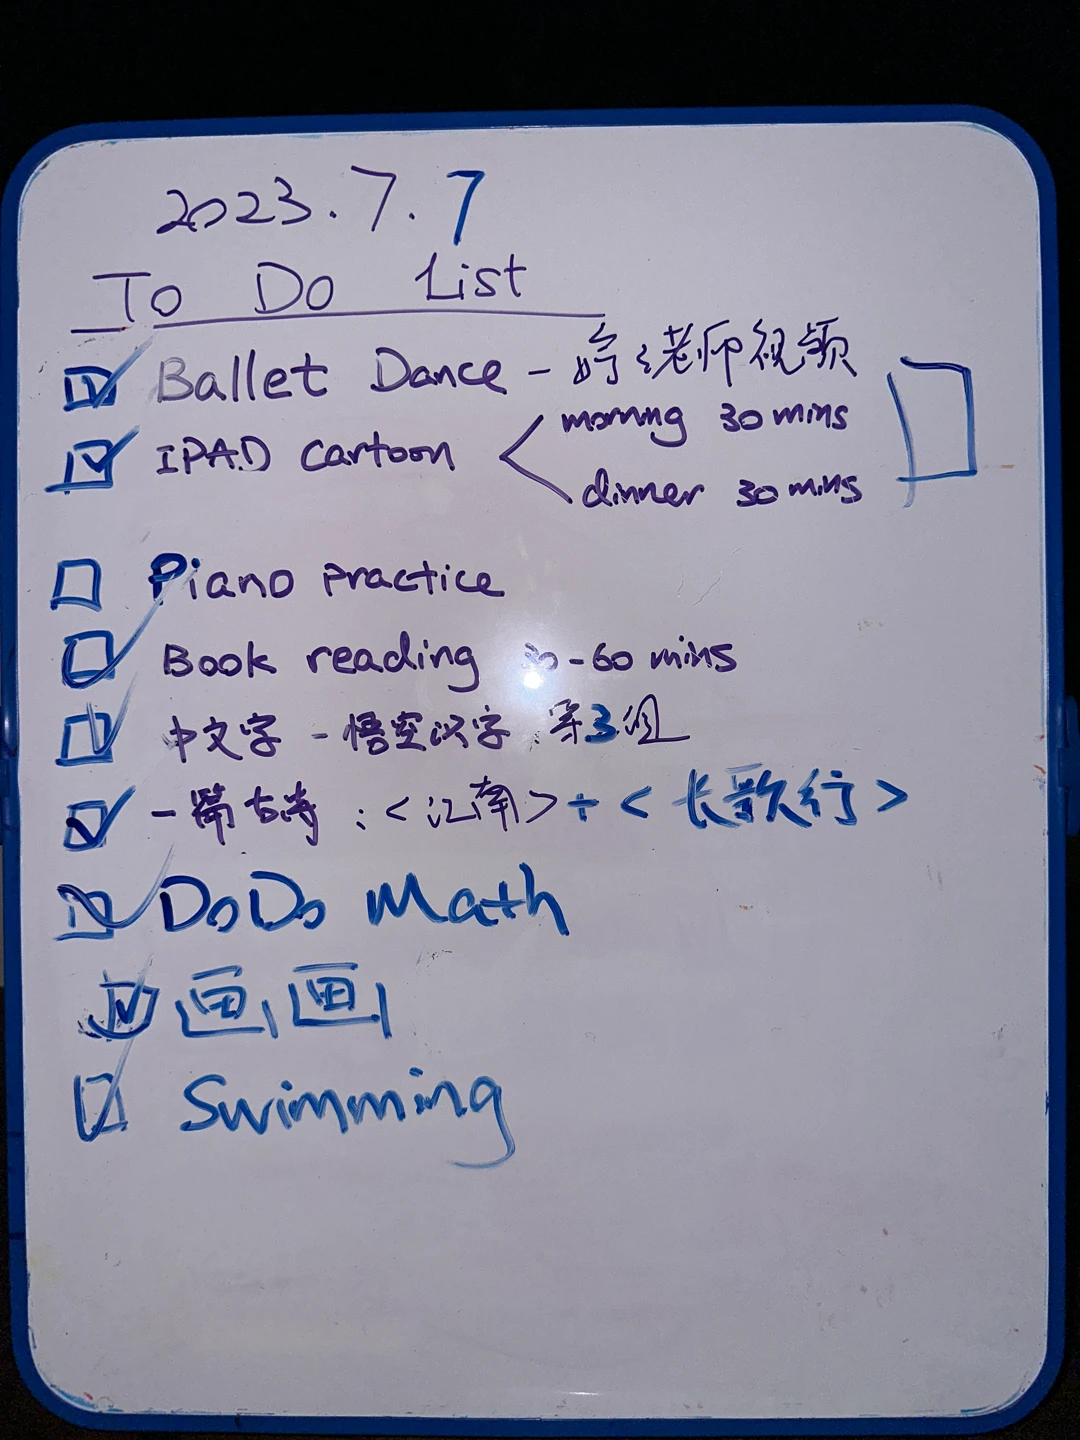 2023.7.7
To Do List
Ballet Dance - 婷婷老师视频
IPAD cartoon < morning 30 mins
dinner 30 mins
Piano practice
Book reading 30-60 mins
中文字 - 悟空识字 第3组
一篇古诗:<江南>+<长歌行>
DoDo Math
画画
Swimming